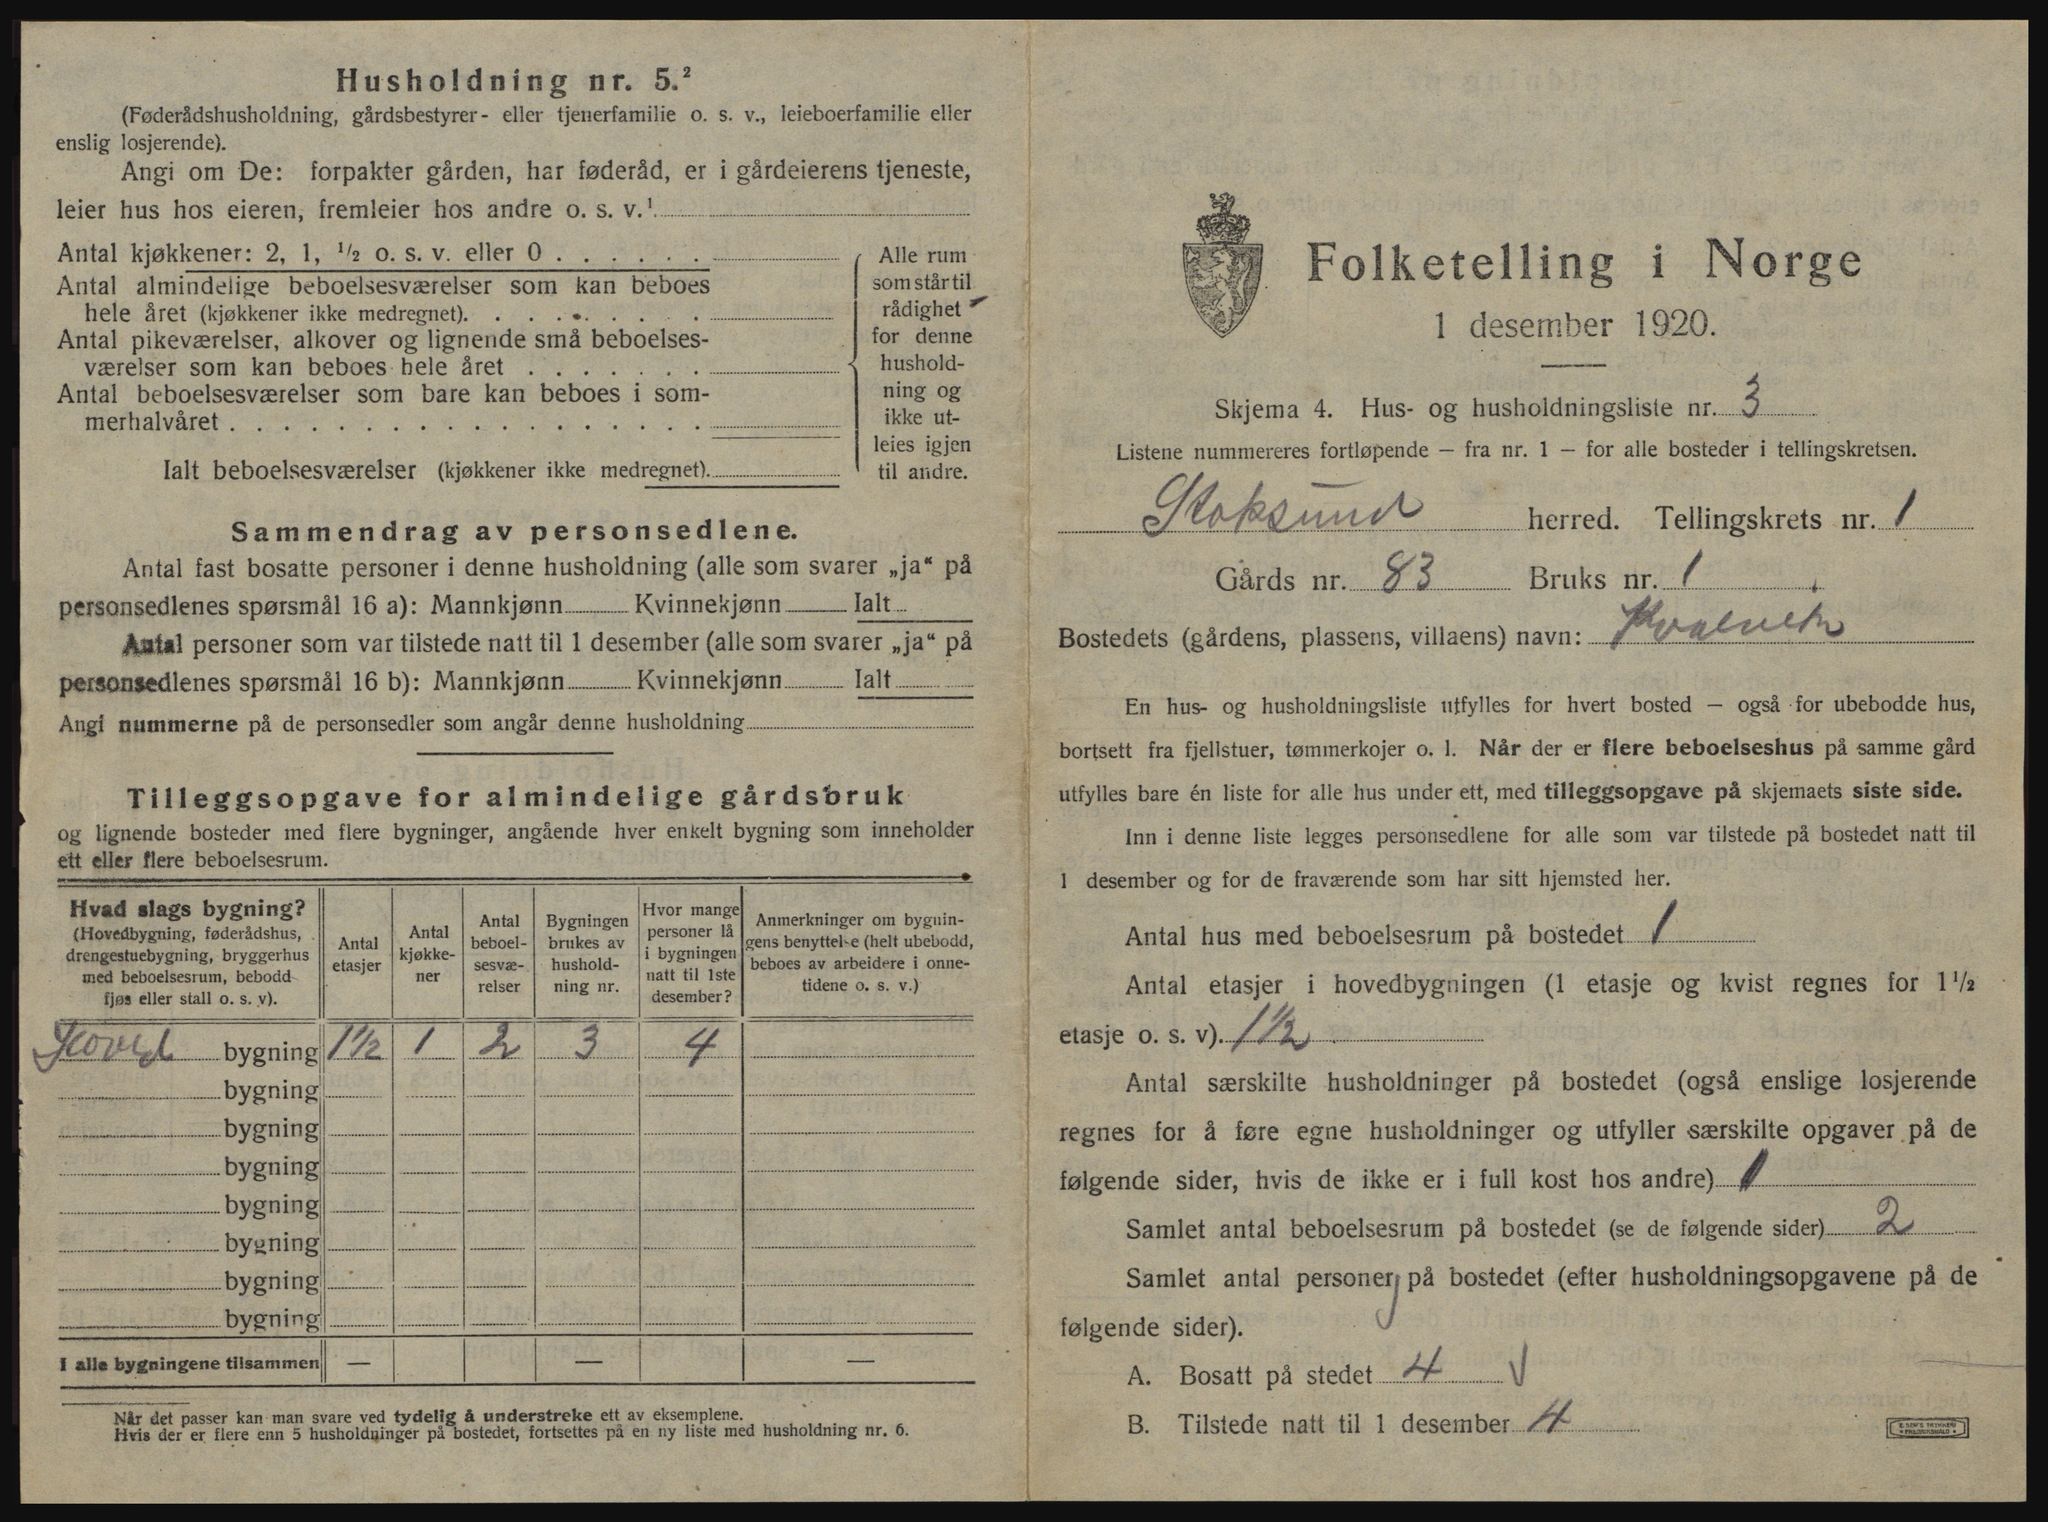 Husholdning nr. 5.²
(Føderådshusholdning, gårdsbestyrer- eller tjenerfamilie o. s. v., leieboerfamilie eller
enslig losjerende).
Angi om De: forpakter gården, har føderåd, er i gårdeierens tjeneste,
leier hus hos eieren, fremleier hos andre o. s. v.¹
Antal kjøkkener: 2, 1, ½ o. s. v. eller 0
Antal almindelige beboelsesværelser som kan beboes
hele året (kjøkkener ikke medregnet).
Antal pikeværelser, alkover og lignende små beboelses-
værelser som kan beboes hele året
Antal beboelsesværelser som bare kan beboes i som-
merhalvåret
Ialt beboelsesværelser (kjøkkener ikke medregnet).
Alle rum
som står til
rådighet
for denne
hushold-
ning og
ikke ut-
leies igjen
til andre.
Sammendrag av personsedlene.
Antal fast bosatte personer i denne husholdning (alle som svarer „ja“ på
personsedlenes spørsmål 16 a): Mannkjønn Kvinnekjønn Ialt
Antal personer som var tilstede natt til 1 desember (alle som svarer „ja“ på
personsedlenes spørsmål 16 b): Mannkjønn Kvinnekjønn Ialt
Angi nummerne på de personsedler som angår denne husholdning
Tilleggsopgave for almindelige gårdsbruk
og lignende bosteder med flere bygninger, angående hver enkelt bygning som inneholder
ett eller flere beboelsesrum.
Hvad slags bygning?
(Hovedbygning, føderådshus,
drengestuebygning, bryggerhus
med beboelsesrum, bebodd
fjøs eller stall o. s. v).
Antal
etasjer
Antal
kjøkke-
ner
Antal
beboel-
sesvæ-
relser
Bygningen
brukes av
hushold-
ning nr.
Hvor mange
personer lå
i bygningen
natt til 1ste
desember?
Anmerkninger om bygnin-
gens benyttelse (helt ubebodd,
beboes av arbeidere i onne-
tidene o. s. v.)
Hoved bygning 1½ 1 2 3 4
bygning
bygning
bygning
bygning
bygning
bygning
bygning
I alle bygningene tilsammen — — —
Når det passer kan man svare ved tydelig å understreke ett av eksemplene.
Hvis der er flere enn 5 husholdninger på bostedet, fortsettes på en ny liste med husholdning nr. 6.
Folketelling i Norge
1 desember 1920.
Skjema 4. Hus- og husholdningsliste nr. 3
Listene nummereres fortløpende – fra nr. 1 – for alle bosteder i tellingskretsen.
Stoksund herred. Tellingskrets nr. 1
Gårds nr. 83 Bruks nr. 1
Bostedets (gårdens, plassens, villaens) navn:
En hus- og husholdningsliste utfylles for hvert bosted – også for ubebodde hus,
bortsett fra fjellstuer, tømmerkojer o. l. Når der er flere beboelseshus på samme gård
utfylles bare én liste for alle hus under ett, med tilleggsopgave på skjemaets siste side.
Inn i denne liste legges personsedlene for alle som var tilstede på bostedet natt til
1 desember og for de fraværende som har sitt hjemsted her.
Antal hus med beboelsesrum på bostedet 1
Antal etasjer i hovedbygningen (1 etasje og kvist regnes for 1½
etasje o. s. v). 1½
Antal særskilte husholdninger på bostedet (også enslige losjerende
regnes for å føre egne husholdninger og utfyller særskilte opgaver på de
følgende sider, hvis de ikke er i full kost hos andre) 1
Samlet antal beboelsesrum på bostedet (se de følgende sider) 2
Samlet antal personer på bostedet (efter husholdningsopgavene på de
følgende sider).
A. Bosatt på stedet 4
B. Tilstede natt til 1 desember 4